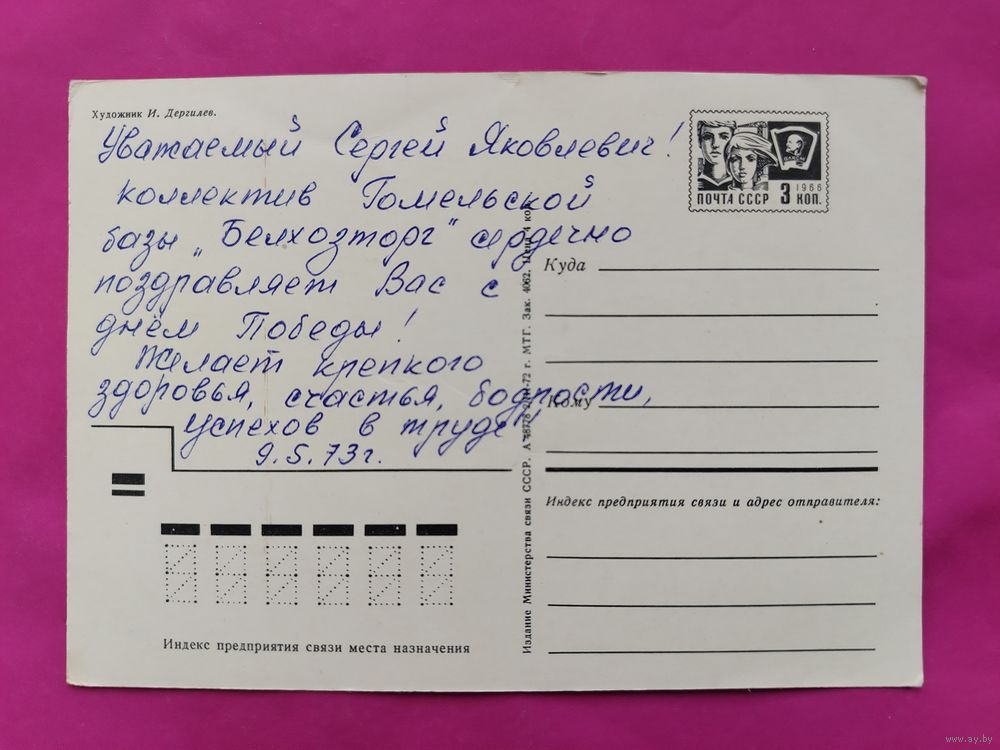 Художник И. Дергилев.
Уважаемый Сергей Яковлевич!
коллектив Гомельской
базы „Белхозторг" сердечно
поздравляет Вас с
днём Победы!
Желает крепкого
здоровья, счастья, бодрости,
успехов в труде"
9.5.73г.
Индекс предприятия связи места назначения
Издание Министерства связи СССР. А 2-III-72 г. МТГ. Зак. 4062. Цена 4 коп.
ВЛКСМ
1966
ПОЧТА СССР 3 КОП.
Куда
Кому
Индекс предприятия связи и адрес отправителя:
www.ay.by